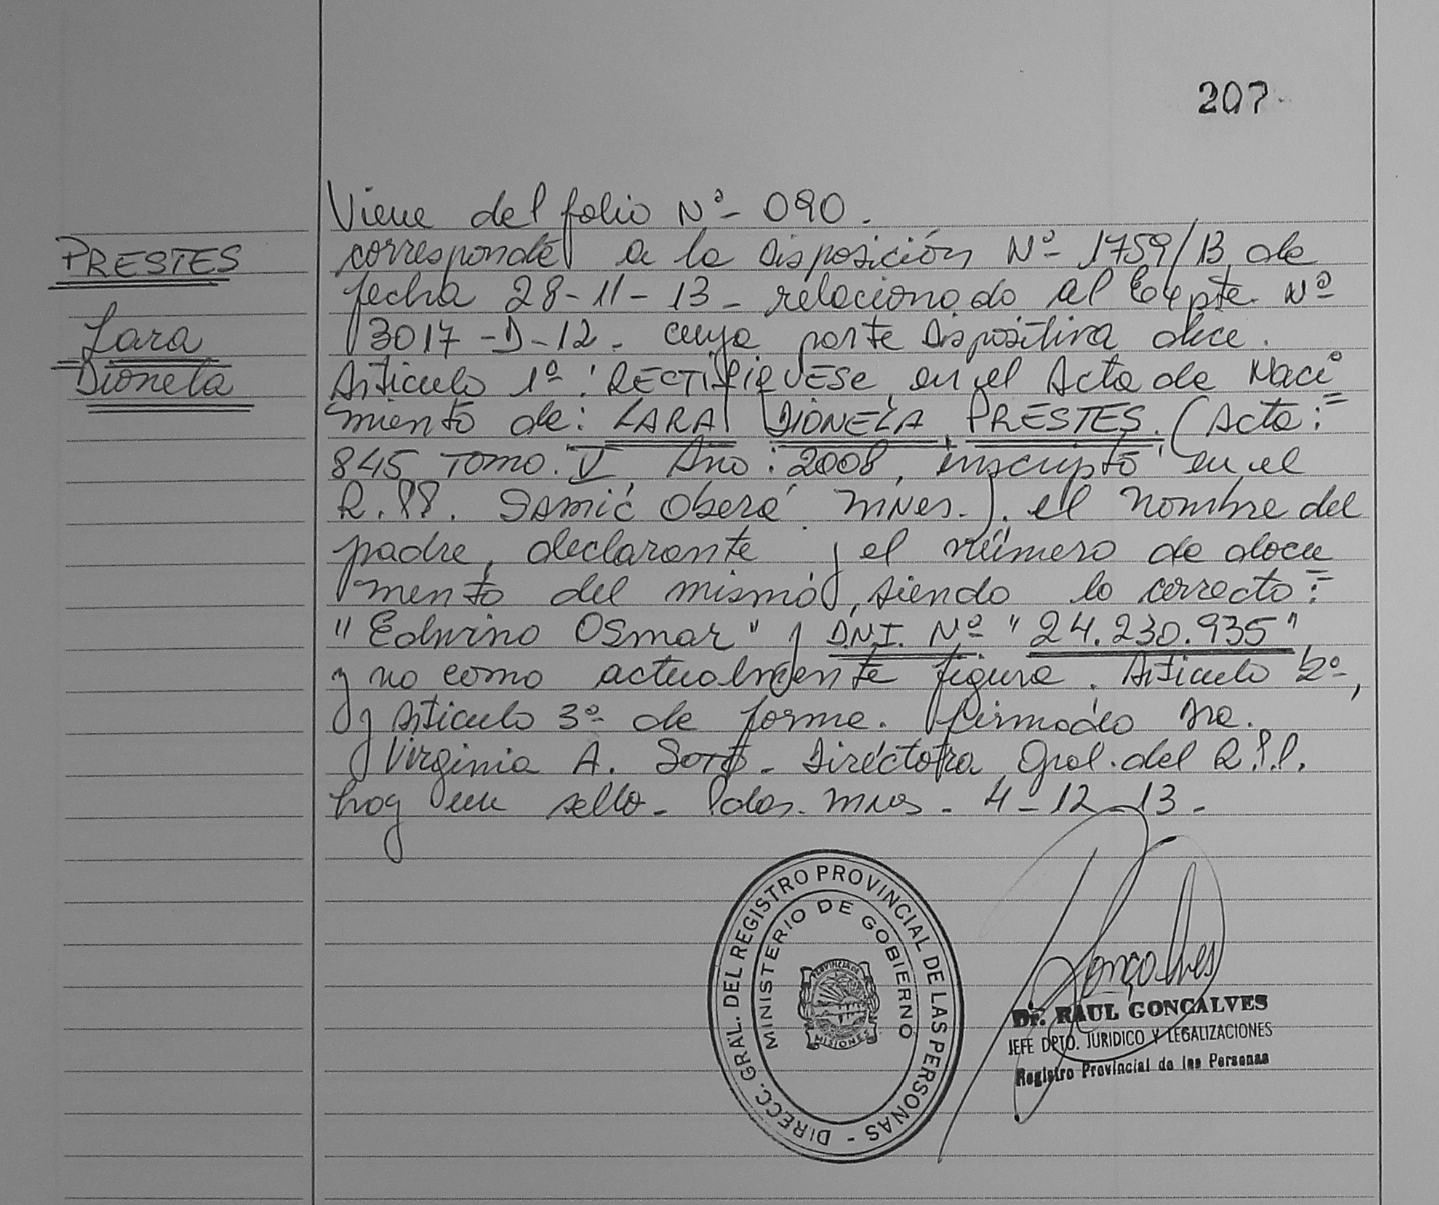 207
Viene del folio Nº- 090.
PRESTES
corresponde a la Disposición Nº- 1759/13 de
fecha 28-11-13- relacionado al Expte. Nº
Lara
3017-D-12. cuya parte Dispositiva dice.
Dionela
Articulo 1º: RECTIFIQUESE en el Acta de Naci
miento de: LARA DIONELA PRESTES. (Acta:
845 Tomo. V Año: 2008, inscripto en el
R.PP. Samic Oberá Mnes.). el nombre del
padre, declarante y el número de docu
mento del mismo, siendo lo correcto:
"Edwino Osmar" y DNI. Nº "24.230.935"
y no como actualmente figura. Articulo 2º-,
y Articulo 3º- de forma. Firmado Sra.
Virginia A. Soto- Directora Gral. del R.P.P.
hay un sello- Pdas. Mnes- 4-12-13-
DIRECC. GRAL. DEL REGISTRO PROVINCIAL DE LAS PERSONAS -
MINISTERIO DE GOBIERNO
PROVINCIA DE
MISIONES
Gonçalves
Dr. RAUL GONCALVES
JEFE DPTO. JURIDICO Y LEGALIZACIONES
Registro Provincial de las Personas